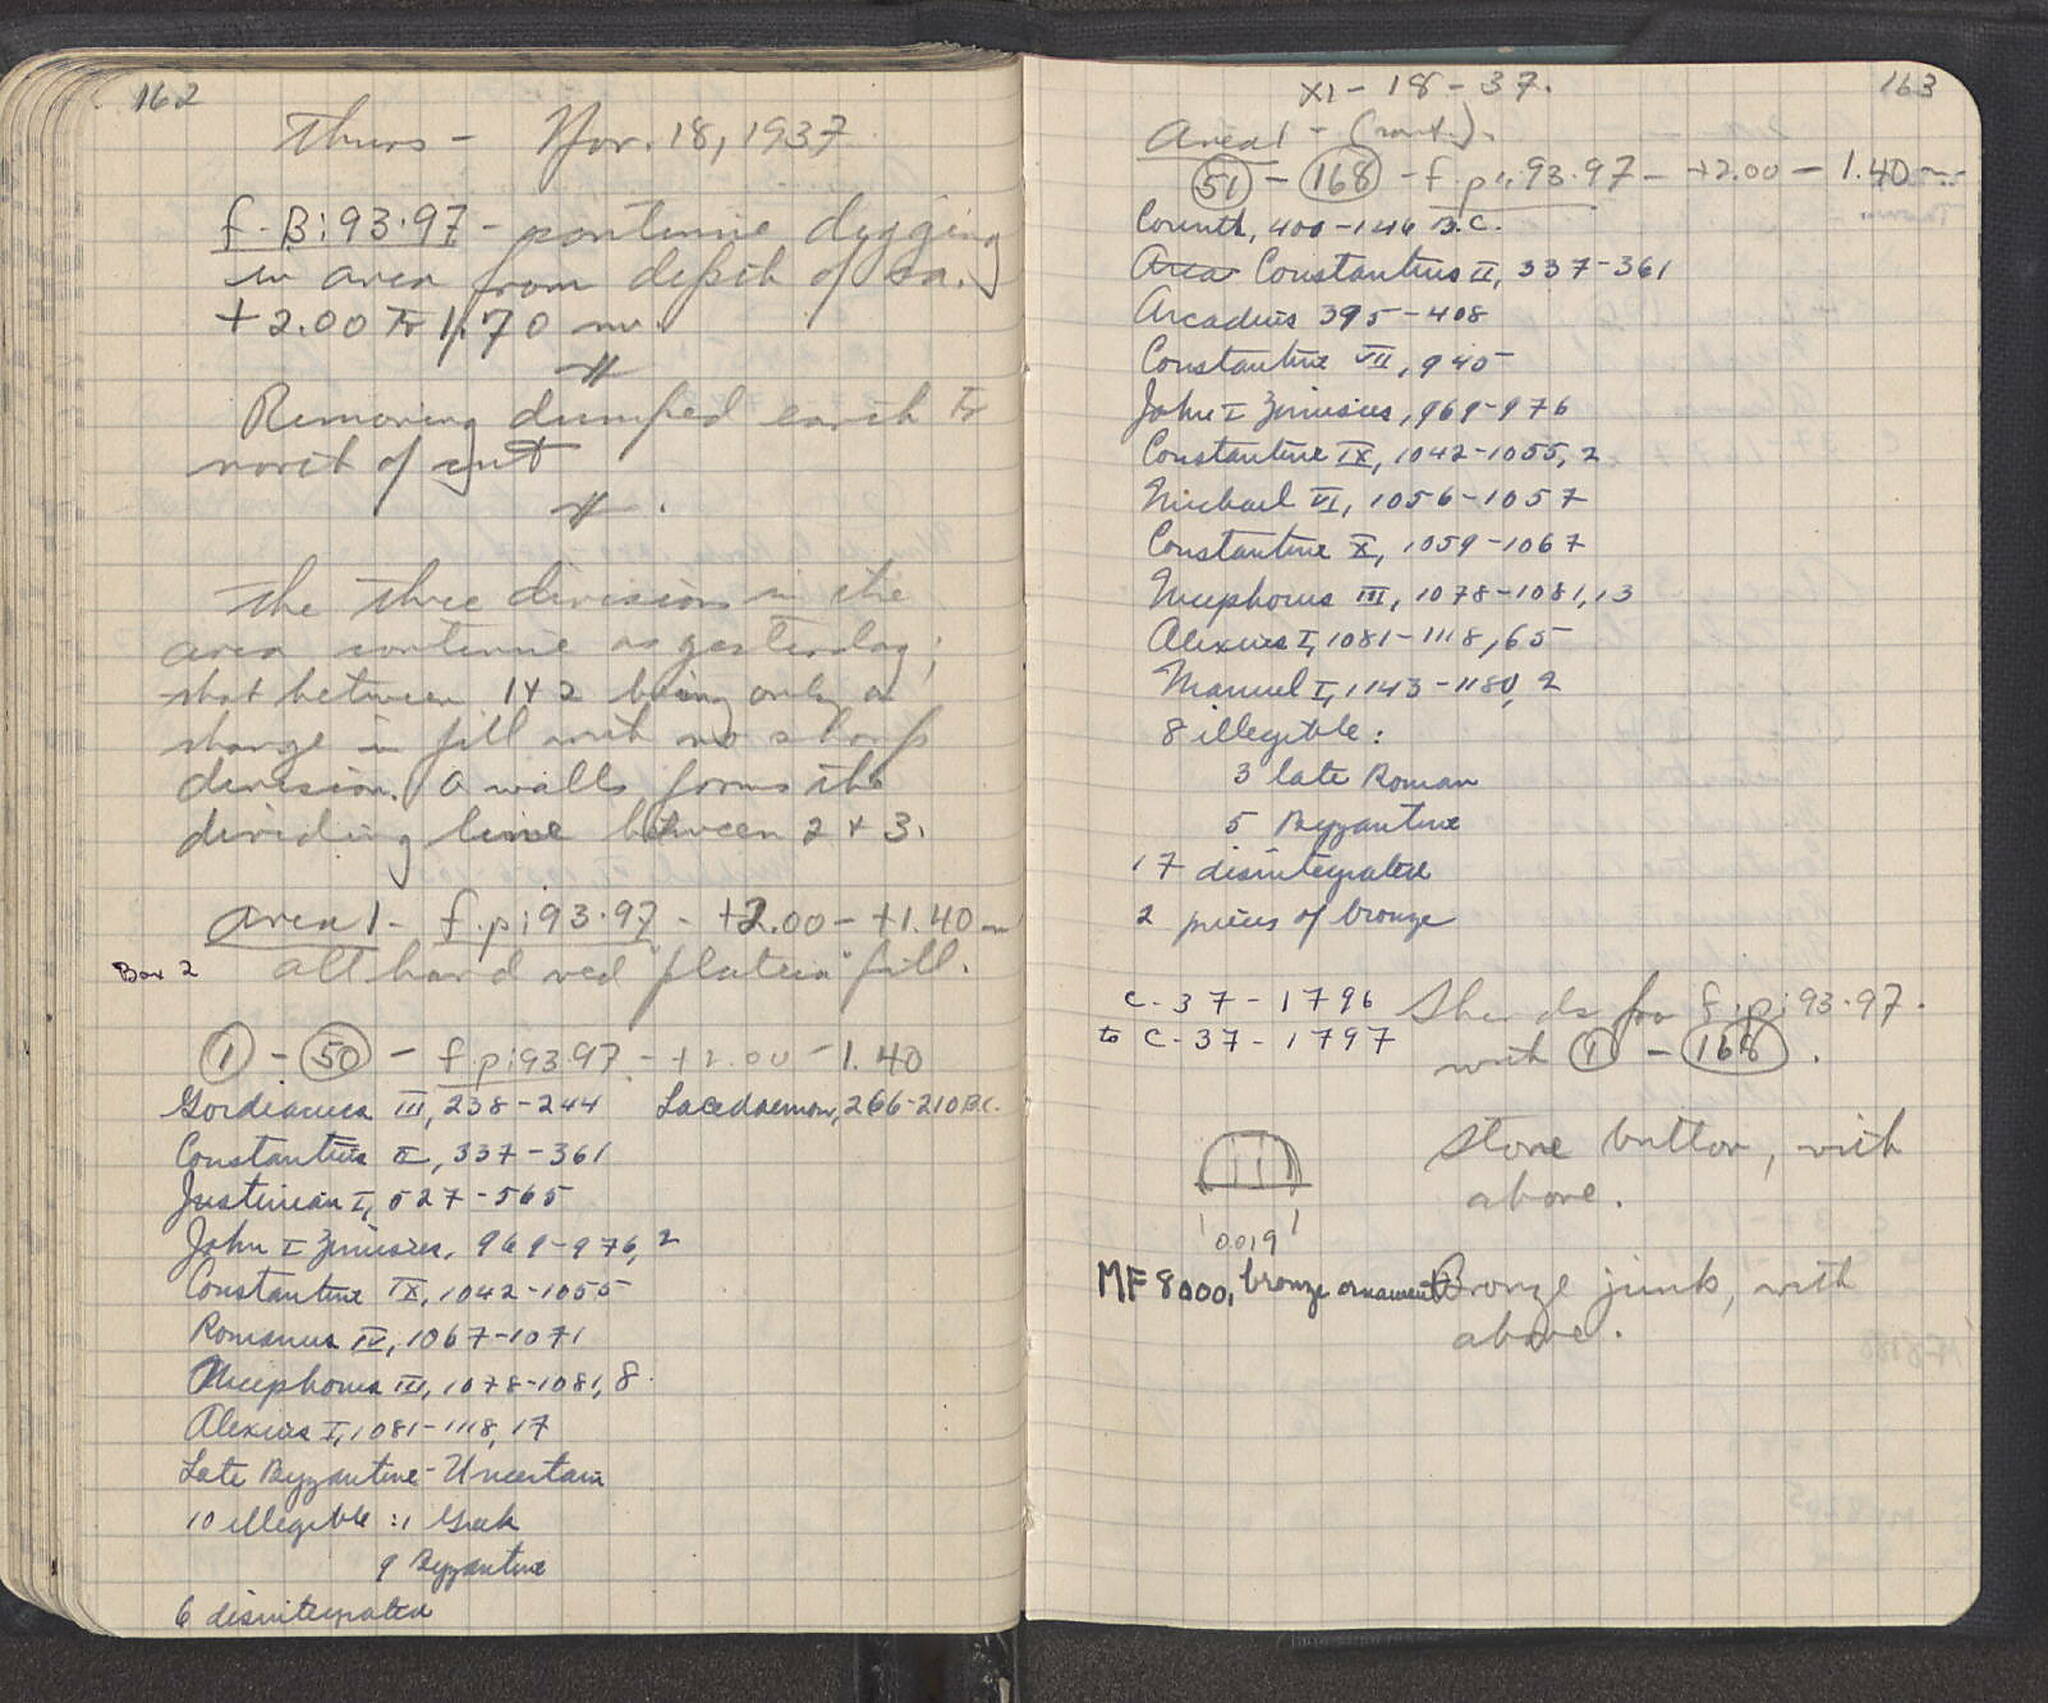 162
Thurs - Nov. 18, 1937
f-B:93·97 - continue digging
in area from depth of ca.
+2.00 to 1.70 m.
Removing dumped earth to
north of cut
The three divisions in the
area continue as yesterday;
that between 1+2 being only a
change in fill with no sharp
division. A walls forms the
dividing line between 2 + 3.
Area 1 - f.p:93·97 - +2.00 - +1.40 m
Box 2
all hard red "plateia" fill.
1 - 50 - f.p:93.97 - +2.00 - 1.40
Gordianus III, 238-244 Lacedaemon, 266-210 B.C.
Constantius II, 337-361
Justinian I, 527-565
John I Zimisces, 969-976, 2
Constantine IX, 1042-1055
Romanus IV, 1067-1071
Nicephorus III, 1078-1081, 8.
Alexius I, 1081-1118, 17
Late Byzantine - Uncertain
10 illegible : 1 Greek
9 Byzantine
6 disintegrated
XI - 18 - 37.
163
Area 1 - (cont.).
51 - 168 - f.p:93.97 - +2.00 - 1.40 m
Corinth, 400-146 B.C.
Area Constantius II, 337-361
Arcadius 395-408
Constantine VII, 945
John I Zimisces, 969-976
Constantine IX, 1042-1055, 2
Michael VI, 1056-1057
Constantine X, 1059-1067
Nicephorus III, 1078-1081, 13
Alexius I, 1081-1118, 65
Manuel I, 1143-1180, 2
8 illegible :
3 late Roman
5 Byzantine
17 disintegrated
2 pieces of bronze
C-37-1796 Sherds from f:p:93·97.
to C-37-1797 with 1 - 168.
Stone button, with
above.
0.019
MF 8000, bronze ornament Bronze junk, with
above.